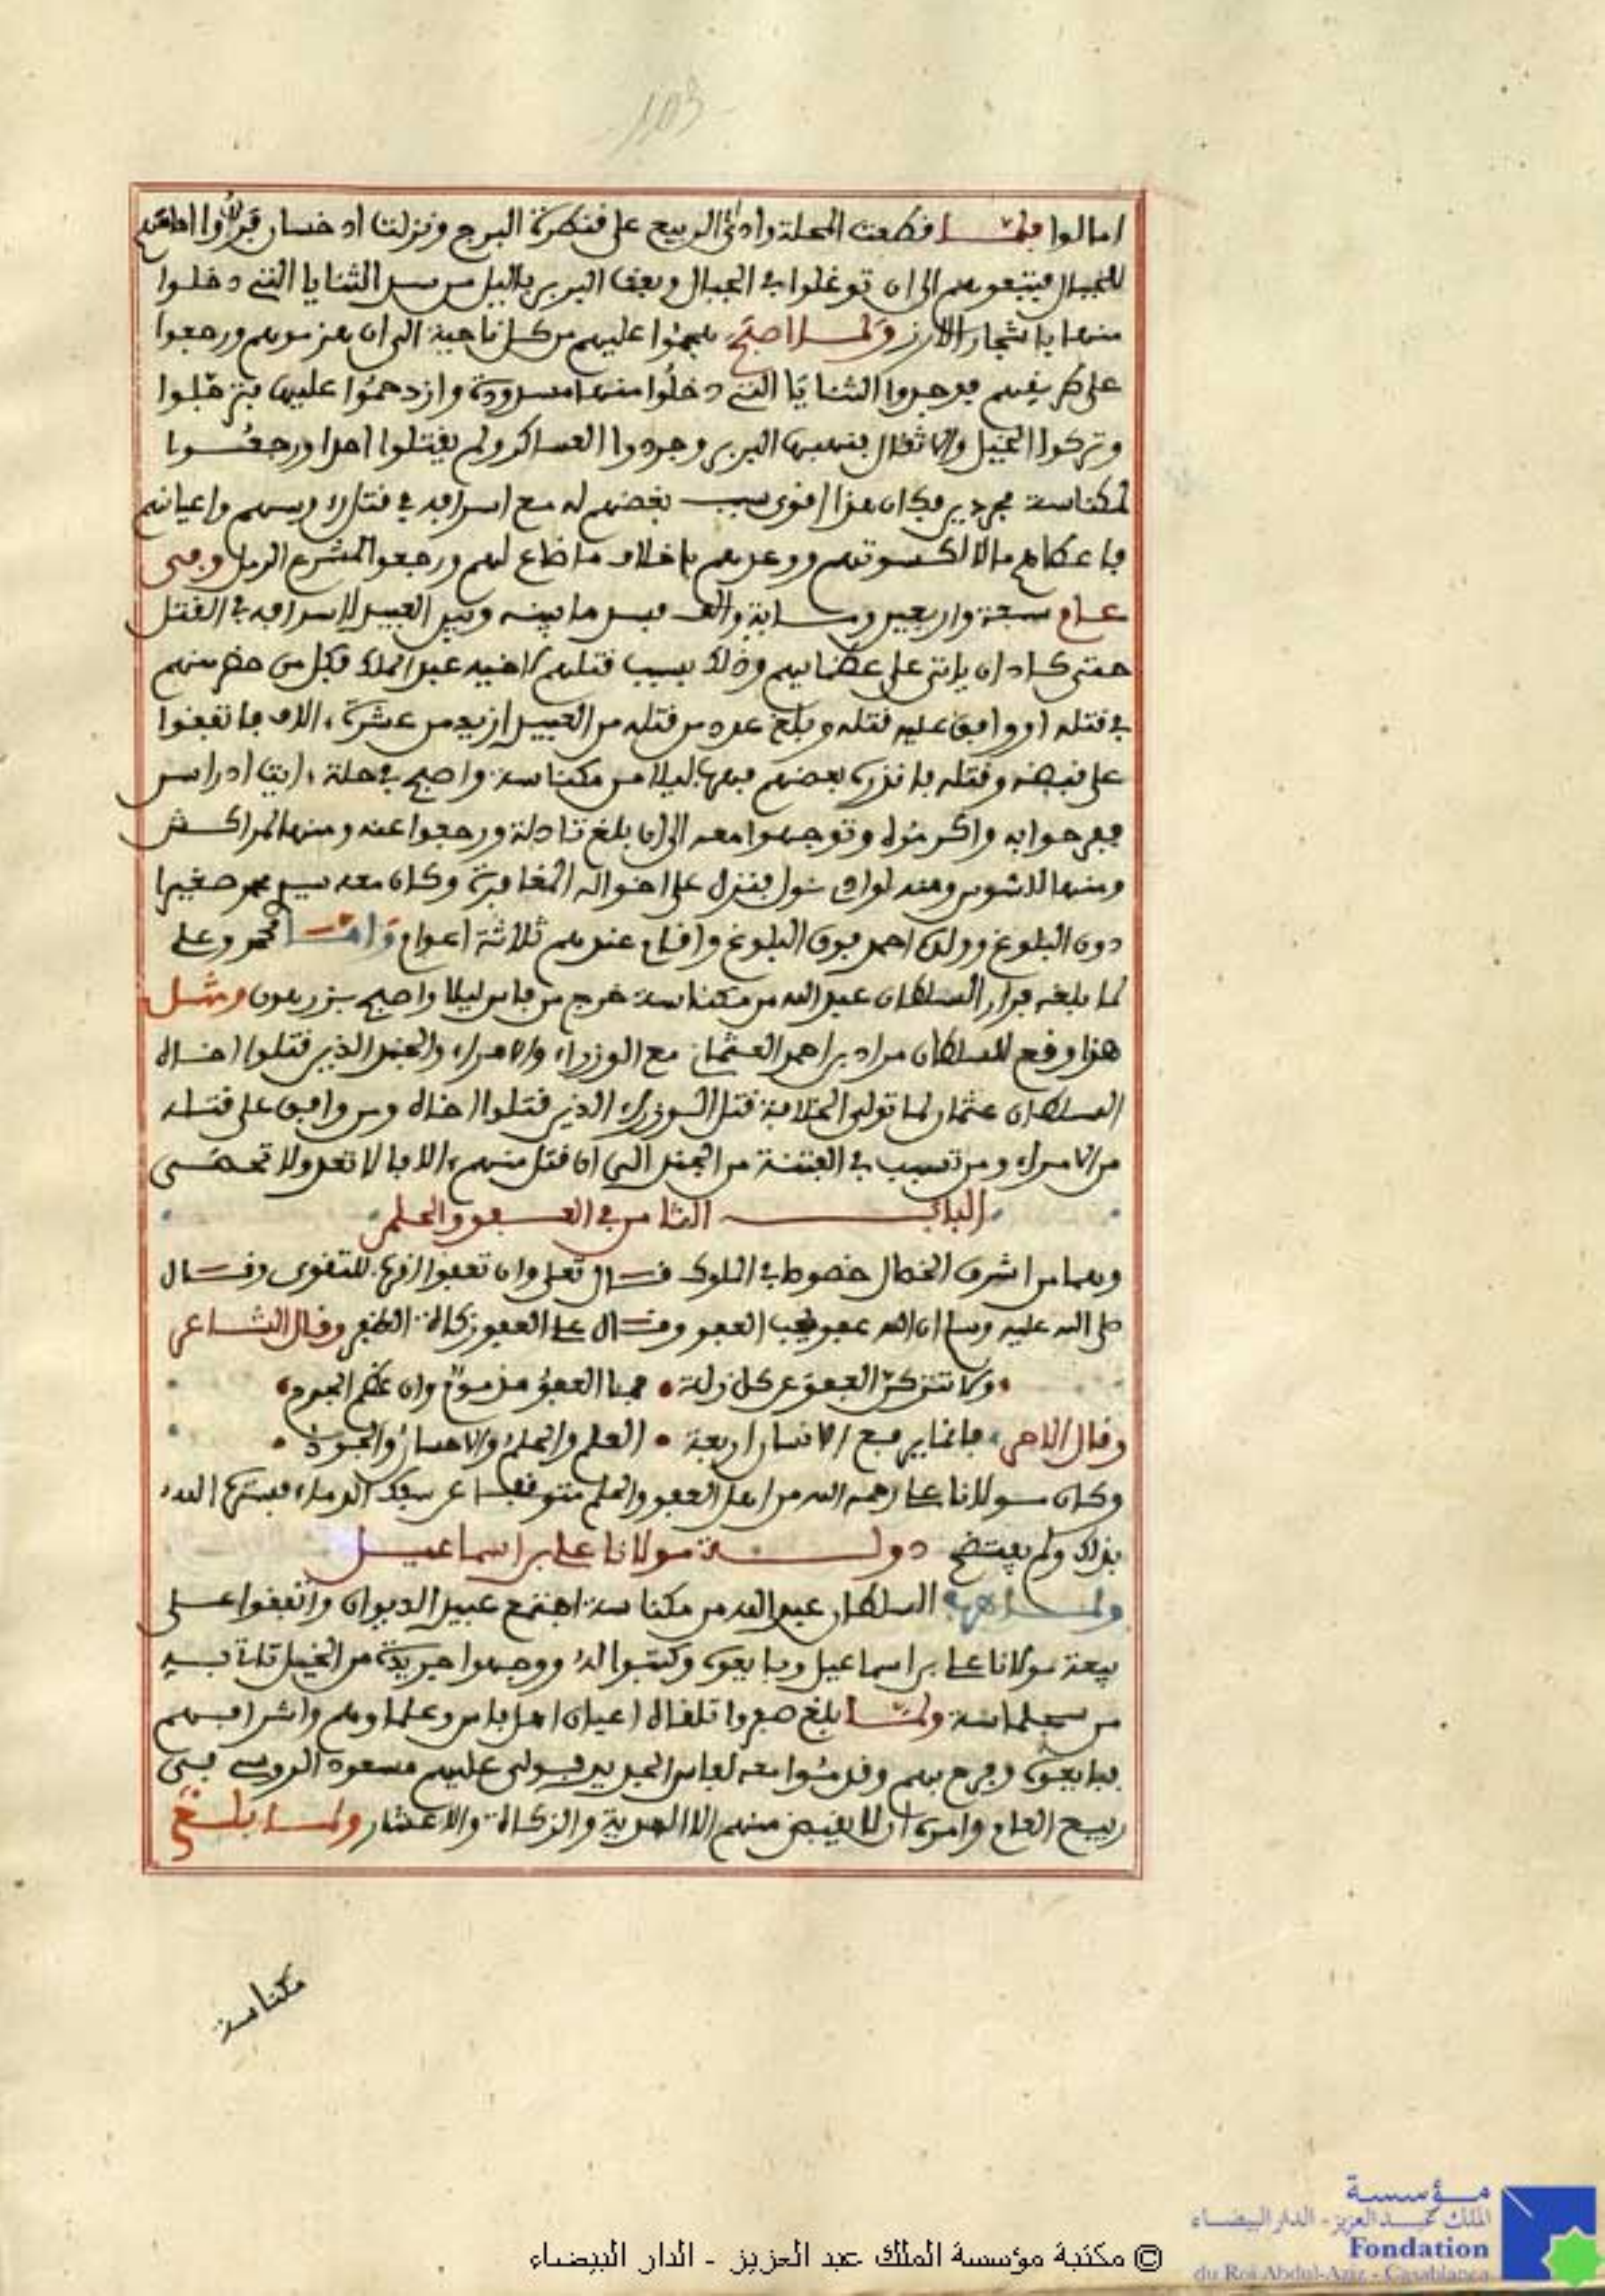 103
امالوا فلما قطعت المحلة وادي ام الربيع على قنطرة البرج ونزلت ادخسان فروا امامهم
للجبال فيتبعوهم الى ان توغلوا في الجبال وبعث البربر باليل من سد الثنايا التي دخلوا
منها باشجار الارز ولما اصبح هجموا عليهم من كل ناحية الى ان هزموهم ورجعوا
على طريقهم فوجدوا الثنايا التي دخلوا منها مسدودة وازدحموا عليها فترجلوا
وتركوا الخيل والاثقال فنهبها البربر وجردوا العساكر ولم يقتلوا احدا ورجعوا
لمكناسة مجردين فكان هذا اقوى سبب بغضهم له مع اسرافه في قتل رءوسهم واعيانهم
فاعطاهم مالا لكسوتهم ووعدهم باخلاف ما ضاع لهم ورجعوا لمشرع الرمل وفى
عام سبعة واربعين ومـاية والف فسد ما بينه وبين العبيد لاسرافه في القتل
حتى كاد ان ياتي على عظمايهم وذلك بسبب قتلهم لاخيه عبد الملك فكل من حضر منهم
في قتله او وافق عليه قتله وبلغ عدد من قتله من العبيد ازيد من عشرة ءالاف فاتفقوا
على قبضه وقتله فانذره بعضهم فهرب ليلا من مكناسة واصبح في حلة ءايت ادراسن
ففرحوا به واكرموه وتوجهوا معه الى ان بلغ تادلة ورجعوا عنه ومنها لمراكش
ومنها للسوس ومنه لوادي نول فنزل على اخواله المغافرة وكان معه سيدي محمد صغيرا
دون البلوغ وولده احمد فوق البلوغ واقام عندهم ثلاثة اعوام وامـا محمد وعلي
لما بلغه فرار السلطان عبد الله من مكناسة خرج من فاس ليلا واصبح بزرهون ومثل
هذا وقع للسلطان مراد بن احمد العثماني مع الوزراء والامراء والجند الذين قتلوا اخاه
السلطان عثمان لما تولى الخلافة قتل الوزراء الذين قتلوا اخاه ومن وافق على قتله
من الامراء ومن تسبب في الفتنة من الجند الى ان قتل منهم ءالافا لا تعد ولا تحصى
البـاب الثامن في العـفو والحلم
وهما من اشرف الخصال خصوصا في الملوك قـال تعلى وان تعفوا اقرب للتقوى وقـال
صلى الله عليه وسلم ان الله عفو يحب العفو وقـال علي العفو زكاة الظفر وقال الشاعر
ولا تتركن العفو عن كل زلة • فما العفو مذموم وان عظم الجرم
وقال الاخر فانما يرفع الانسان اربعة • العلم والحلم والاحسان والجود
وكان مولانا علي رحمه الله من اهل العفو والحلم متوقفا عن سفك الدماء فستره الله
بذلك ولم يفتضح دولـة مولانا علي بن اسماعيل
ولمـا هرب السلطان عبد الله من مكناسة اجتمع عبيد الديوان واتفقوا على
بيعة مولانا علي بن اسماعيل وبايعوه وكتبوا له ووجهوا جريدة من الخيل تاتي به
من سجلماسة ولمـا بلغ صفروا تلقاه اعيان اهل فاس وعلماوهم واشرافهم
فبايعوه وفرح بهم وقدموا معه لفاس الجديد فولى عليهم مسعود الروسي في
ربيع العام وامره ان لا يقبض منهم الا الهدية والزكاة والاعشار ولمـا بلـغ
مكناسة
مؤسسة
الملك عبد العزيز - الدار البيضاء
Fondation
du Roi Abdul-Aziz - Casablanca
© مكتبة مؤسسة الملك عبد العزيز - الدار البيضاء